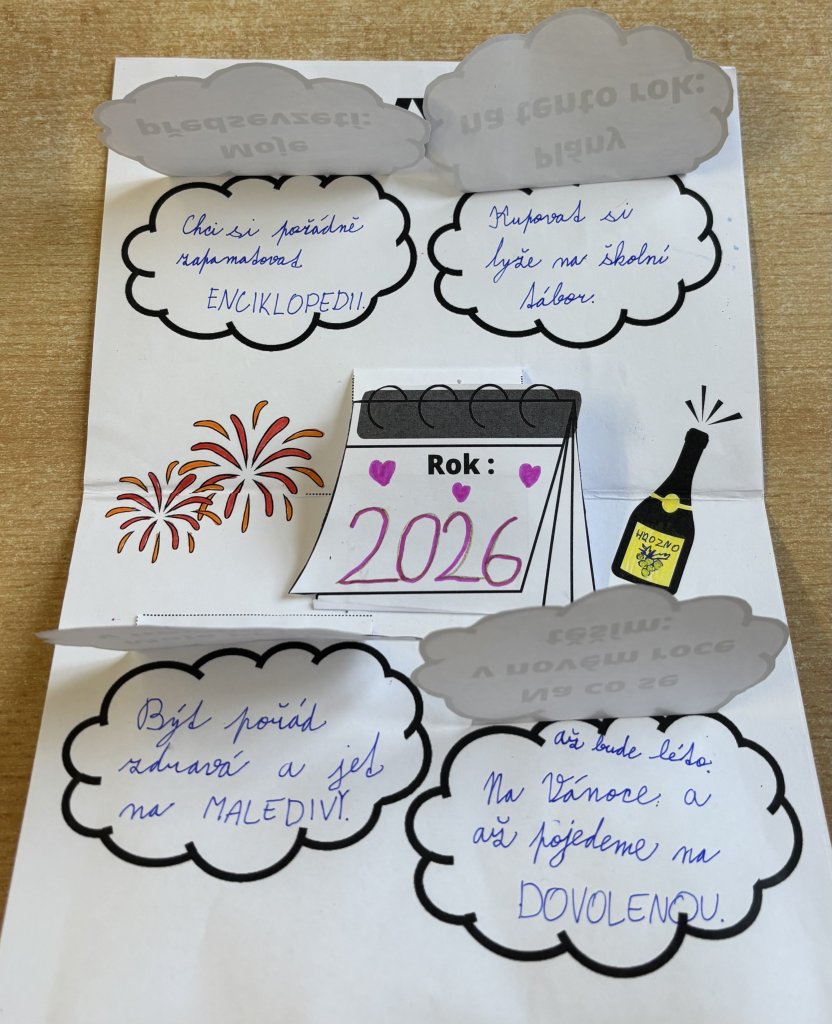 Moje
předsevzetí:
Plány
na tento rok:
Chci si pořádně
zapamatovat
ENCIKLOPEDII.
Kupovat si
lyže na školní
tábor.
Rok :
2026
HROZNO
Na co se
v novém roce
těším:
Být pořád
zdravá a jet
na MALEDIVY.
až bude léto.
Na Vánoce. a
až pojedeme na
DOVOLENOU.